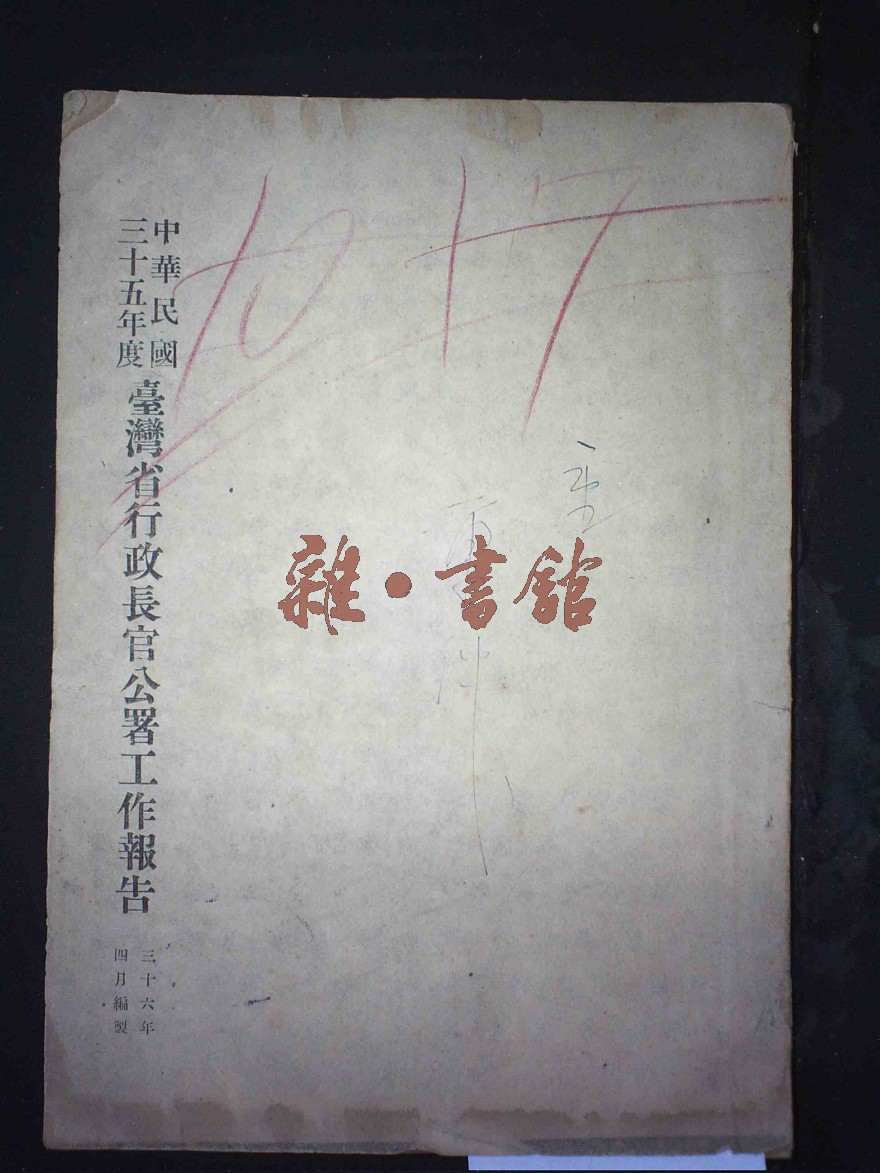 中華民國
三十五年度
臺灣省行政長官公署工作報告
三十六年
四月編製
雜·書館